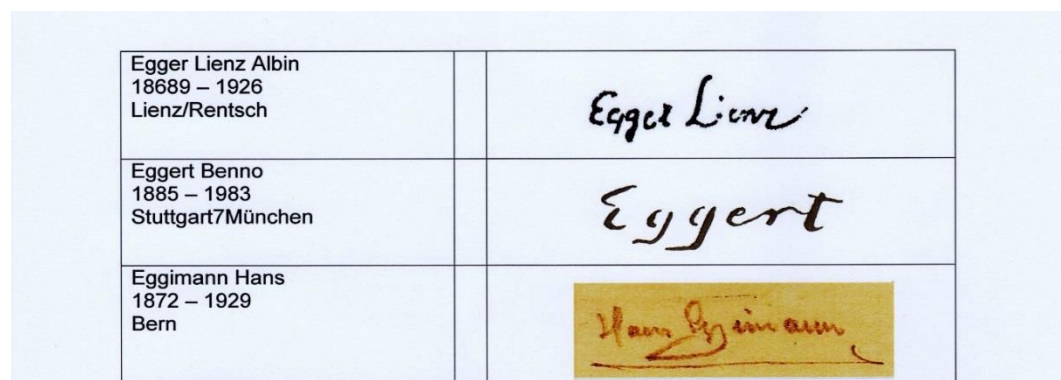 Egger Lienz Albin
18689 – 1926
Lienz/Rentsch
Egger Lienz
Eggert Benno
1885 – 1983
Stuttgart7München
Eggert
Eggimann Hans
1872 – 1929
Bern
Hans Eggimann